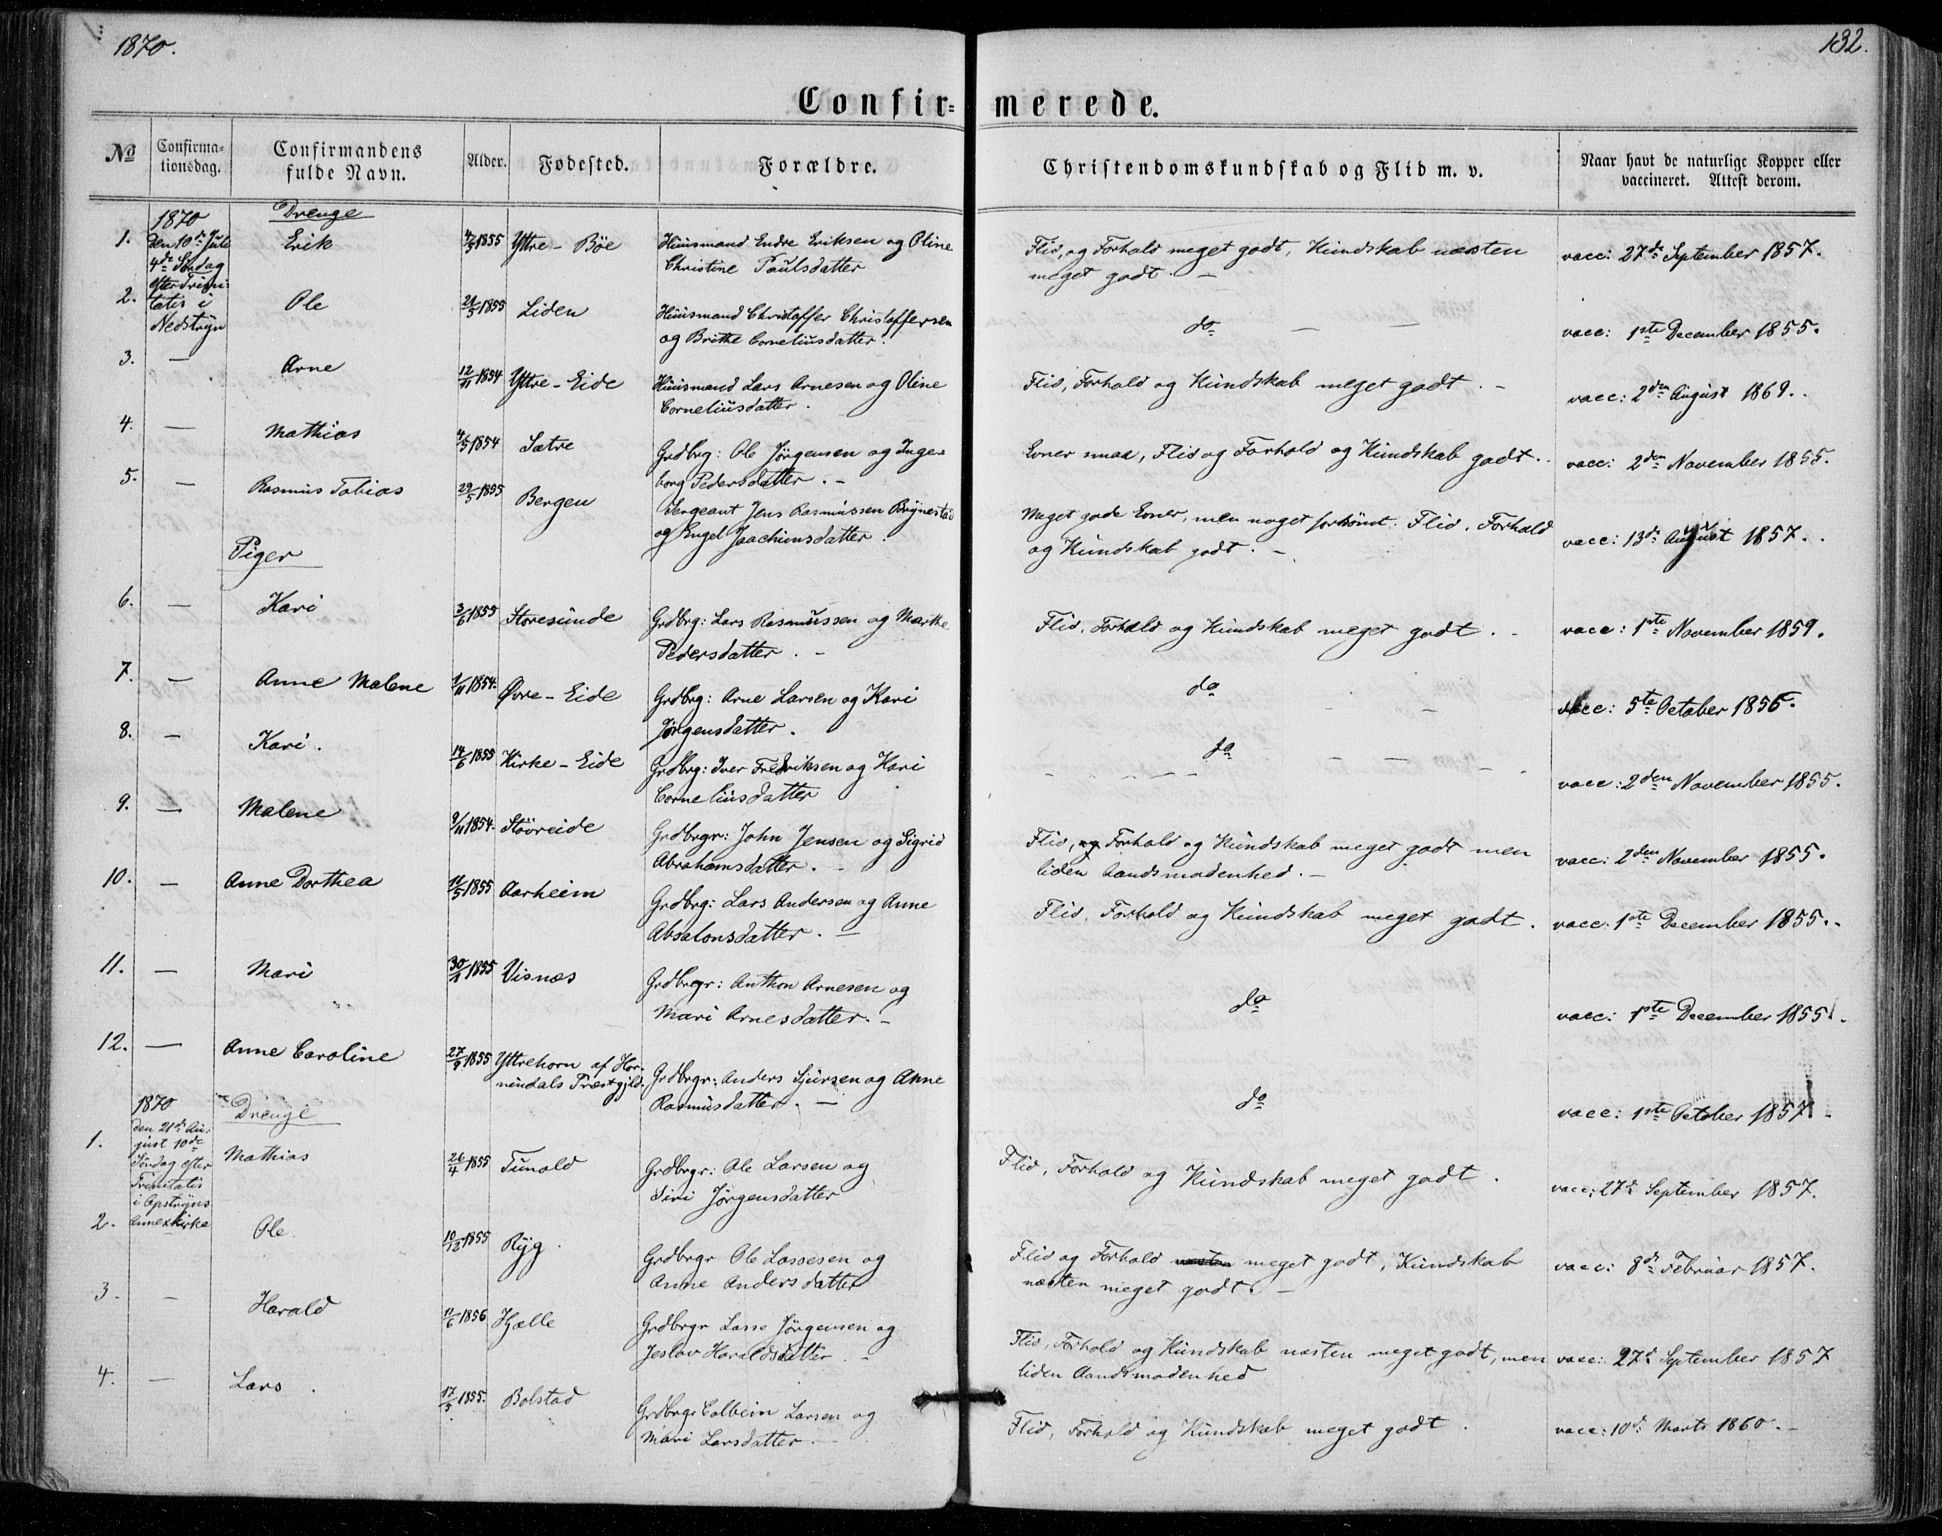 1870.
132.
Confir- merede.
No
Confirma-
tionsdag.
Confirmandens
fulde Navn.
Alder.
Fødested.
Forældre.
Christendomskundskab og Flid m. v.
Naar havt de naturlige Kopper eller
vaccineret. Attest derom.
1870 Drenge
1. Den 10de Juli Erik 4/3 1855 Yttre-Bøe Huusmand Endre Eriksen og Oline Flid, og Forhold meget godt, Kundskab næsten vacc: 27de September 1857.
4de Søndag Christine Paulsdatter meget godt. -
efter Trini-
2. tatis i Ole 21/5 1855 Liden Huusmand Christoffer Christoffersen do - - vacc: 1ste December 1855.
Nedstryn og Brithe Corneliusdatter.
3. - Arne 12/11 1854 Yttre-Eide Huusmand Lars Arnesen og Oline Flid, Forhold og Kundskab meget godt. - vacc: 2den August 1869.
Corneliusdatter.
4. - Mathias 4/5 1854 Sætre Grdbrg: Ole Jørgensen og Inge- Evner smaa, Flid og Forhold og Kundskab godt. vacc: 2den November 1855.
borg Pedersdatter. -
5. - Rasmus Tobias 29/5 1855 Bergen Sergeant Jens Rasmussen Brynestad Meget gode Evner, men noget forsømt. Flid, Forhold vacc: 13de August 1857.
og Engel Joachimsdatter. og Kundskab godt. -
Piger
6. - Kari 3/6 1855 Storesunde Grdbrg: Lars Rasmussen og Marthe Flid, Forhold og Kundskab meget godt. - vacc: 1ste November 1859.
Pedersdatter. -
7. - Anne Malene 1/11 1854. Øvre-Eide Grdbrg: Arne Larsen og Kari do - - vacc: 5te October 1856.
Jørgensdatter.
8. - Kari. 14/6 1855 Kirke-Eide Grdbrg: Iver Fredriksen og Kari do - - - vacc: 2den November 1855.
Corneliusdatter
9. - Malene 9/11 1854. Støreide Grdbrgr: John Jensen og Sigrid Flid, og Forhold og Kundskab meget godt men vacc: 2den November 1855.
Abrahamsdatter. - liden Aandsmodenhed. -
10. - Anne Dorthea 11/5 1855 Aarheim Grdbrg: Lars Andersen og Anne Flid, Forhold og Kundskab meget godt. vacc: 1ste December 1855.
Absalonsdatter. -
11. - Mari 30/4 1855 Visnæs Grdbrgr: Anthon Arnesen og do vacc: 1ste December 1855.
Mari Arnesdatter. -
12. - Anne Caroline 27/9 1855 Yttrehorn af Hor- Grdbrgr: Anders Sjursen og Anne do vacc: 1ste October 1857.
nindals Præstgjld. Rasmusdatter. -
1870 Drenge
den 21de Au-
1. gust 10de Mathias 26/4 1855 Tunold Grdbrgr: Ole Larsen og Flid, Forhold og Kundskab meget godt. vacc: 27de September 1857.
Søndag efter Siri Jørgensdatter
Trinitatis
i Opstryns
2. Annexkirke Ole 10/12 1855 Ryg. Grdbrgr Ole Lassesen og Flid og Forhold næsten meget godt, Kundskab vacc: 8de Februar 1857.
Anne Andersdatter næsten meget godt. -
3. - Harald 11/6 1856 Hjelle Grdbrgr Lasse Jørgensen og Flid, Forhold og Kundskab næsten meget godt, men vacc: 27de September 1857
Jeslov Haraldsdatter. - liden Aandsmodenhed
4. - Lars. 17/5 1855. Bolstad Grdbrg: Colbein Larsen og Flid, Forhold og Kundskab meget godt. vacc: 10de Marts 1860. -
Mari Larsdatter. -